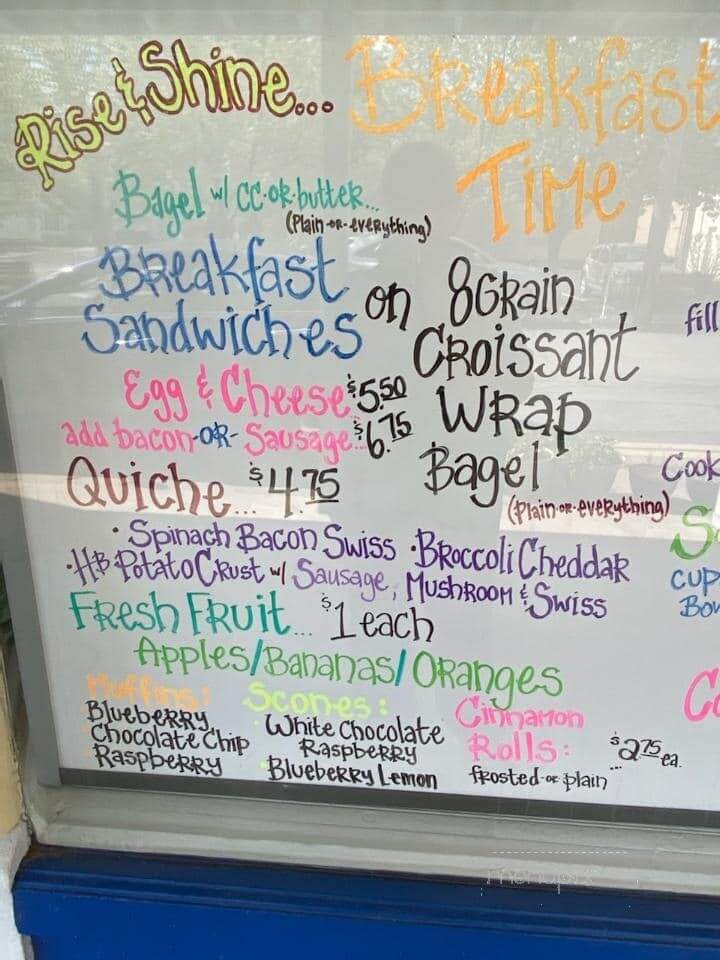 Rise & Shine...
Breakfast
Time
Bagel w/ CC-or-butter...
(Plain-or-everything)
Breakfast
Sandwiches
on
8 Grain
Croissant
Wrap
Bagel
(Plain-or-everything)
Egg & Cheese $5.50
add bacon-OR-Sausage..$6.75
Quiche... $4.75
• Spinach Bacon Swiss • Broccoli Cheddar
• HB Potato Crust w/ Sausage, Mushroom & Swiss
Fresh Fruit... $1 each
Apples/Bananas/Oranges
Muffins:
Blueberry
Chocolate Chip
Raspberry
Scones:
White Chocolate
Raspberry
Blueberry Lemon
Cinnamon
Rolls:
frosted-or plain
... $2.75 ea.
fill
Cook
CUP
Bow
menupix